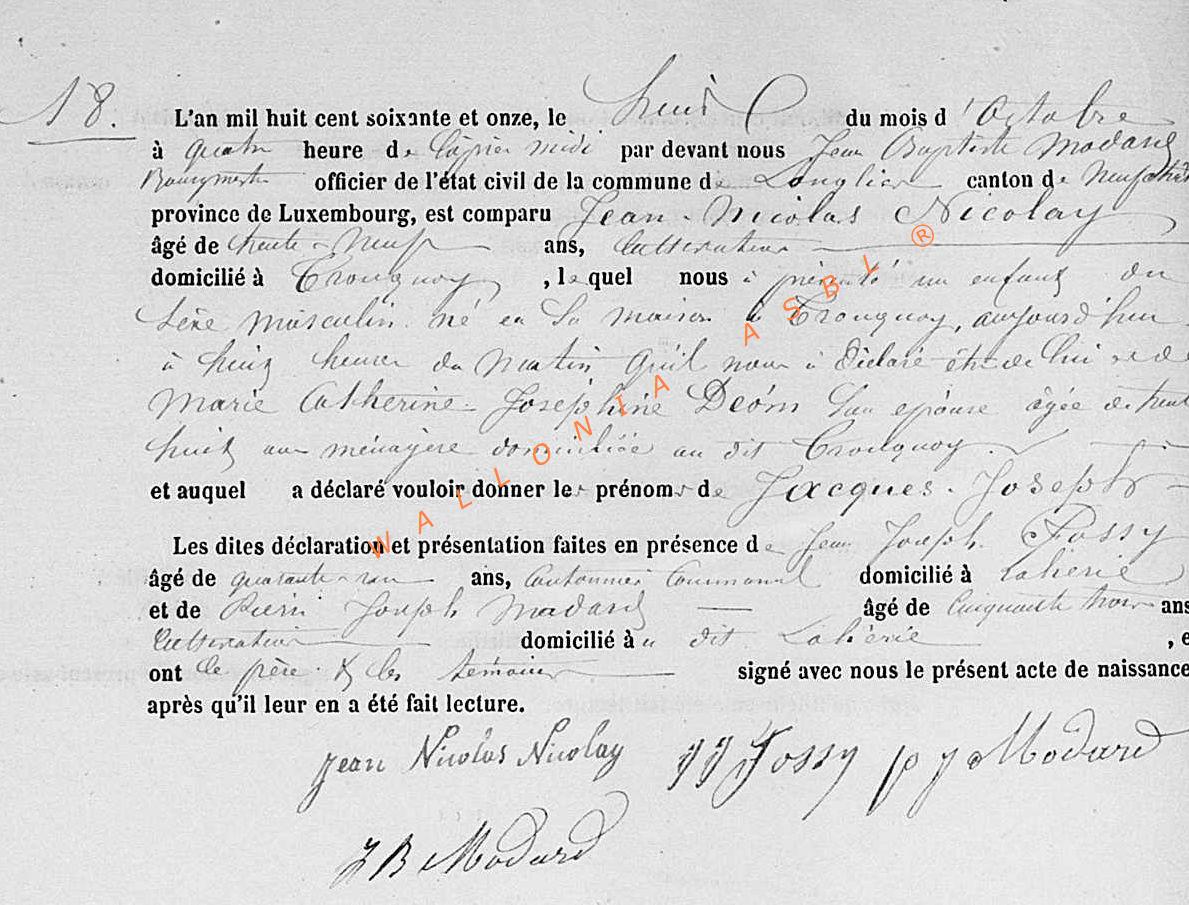 18.
L'an mil huit cent soixante et onze, le huit du mois d'Octobre
à quatre heure de l'après midi par devant nous Jean Baptiste Modard
Bourgmestre officier de l'état civil de la commune de Longlier canton de Neufchât
province de Luxembourg, est comparu Jean-Nicolas Nicolay
âgé de trente-neuf ans, Cultivateur
domicilié à Tronquoy, lequel nous à présenté un enfant du
Sexe masculin né en Sa maison à Tronquoy, aujourd'hui
à huit heures du Matin qu'il nous à déclaré être de lui et de
Marie Catherine-Joséphine Deöm Son epouse agée de trente
huit ans ménagère domiciliée au dit Tronquoy
et auquel a déclaré vouloir donner les prénoms de Jacques-Joseph
Les dites déclaration et présentation faites en présence de Jean Joseph Fossy
âgé de quarante-un ans, Cantonnier Communal domicilié à Laherie
et de Pierre Joseph Modard âgé de Cinquante trois ans
Cultivateur domicilié à dit Lahérie, e
ont le père & les témoins signé avec nous le présent acte de naissance
après qu'il leur en a été fait lecture.
jean Nicolas Nicolay JJ Fossy p j Modard
J B Modard
WALLONIA ASBL ®